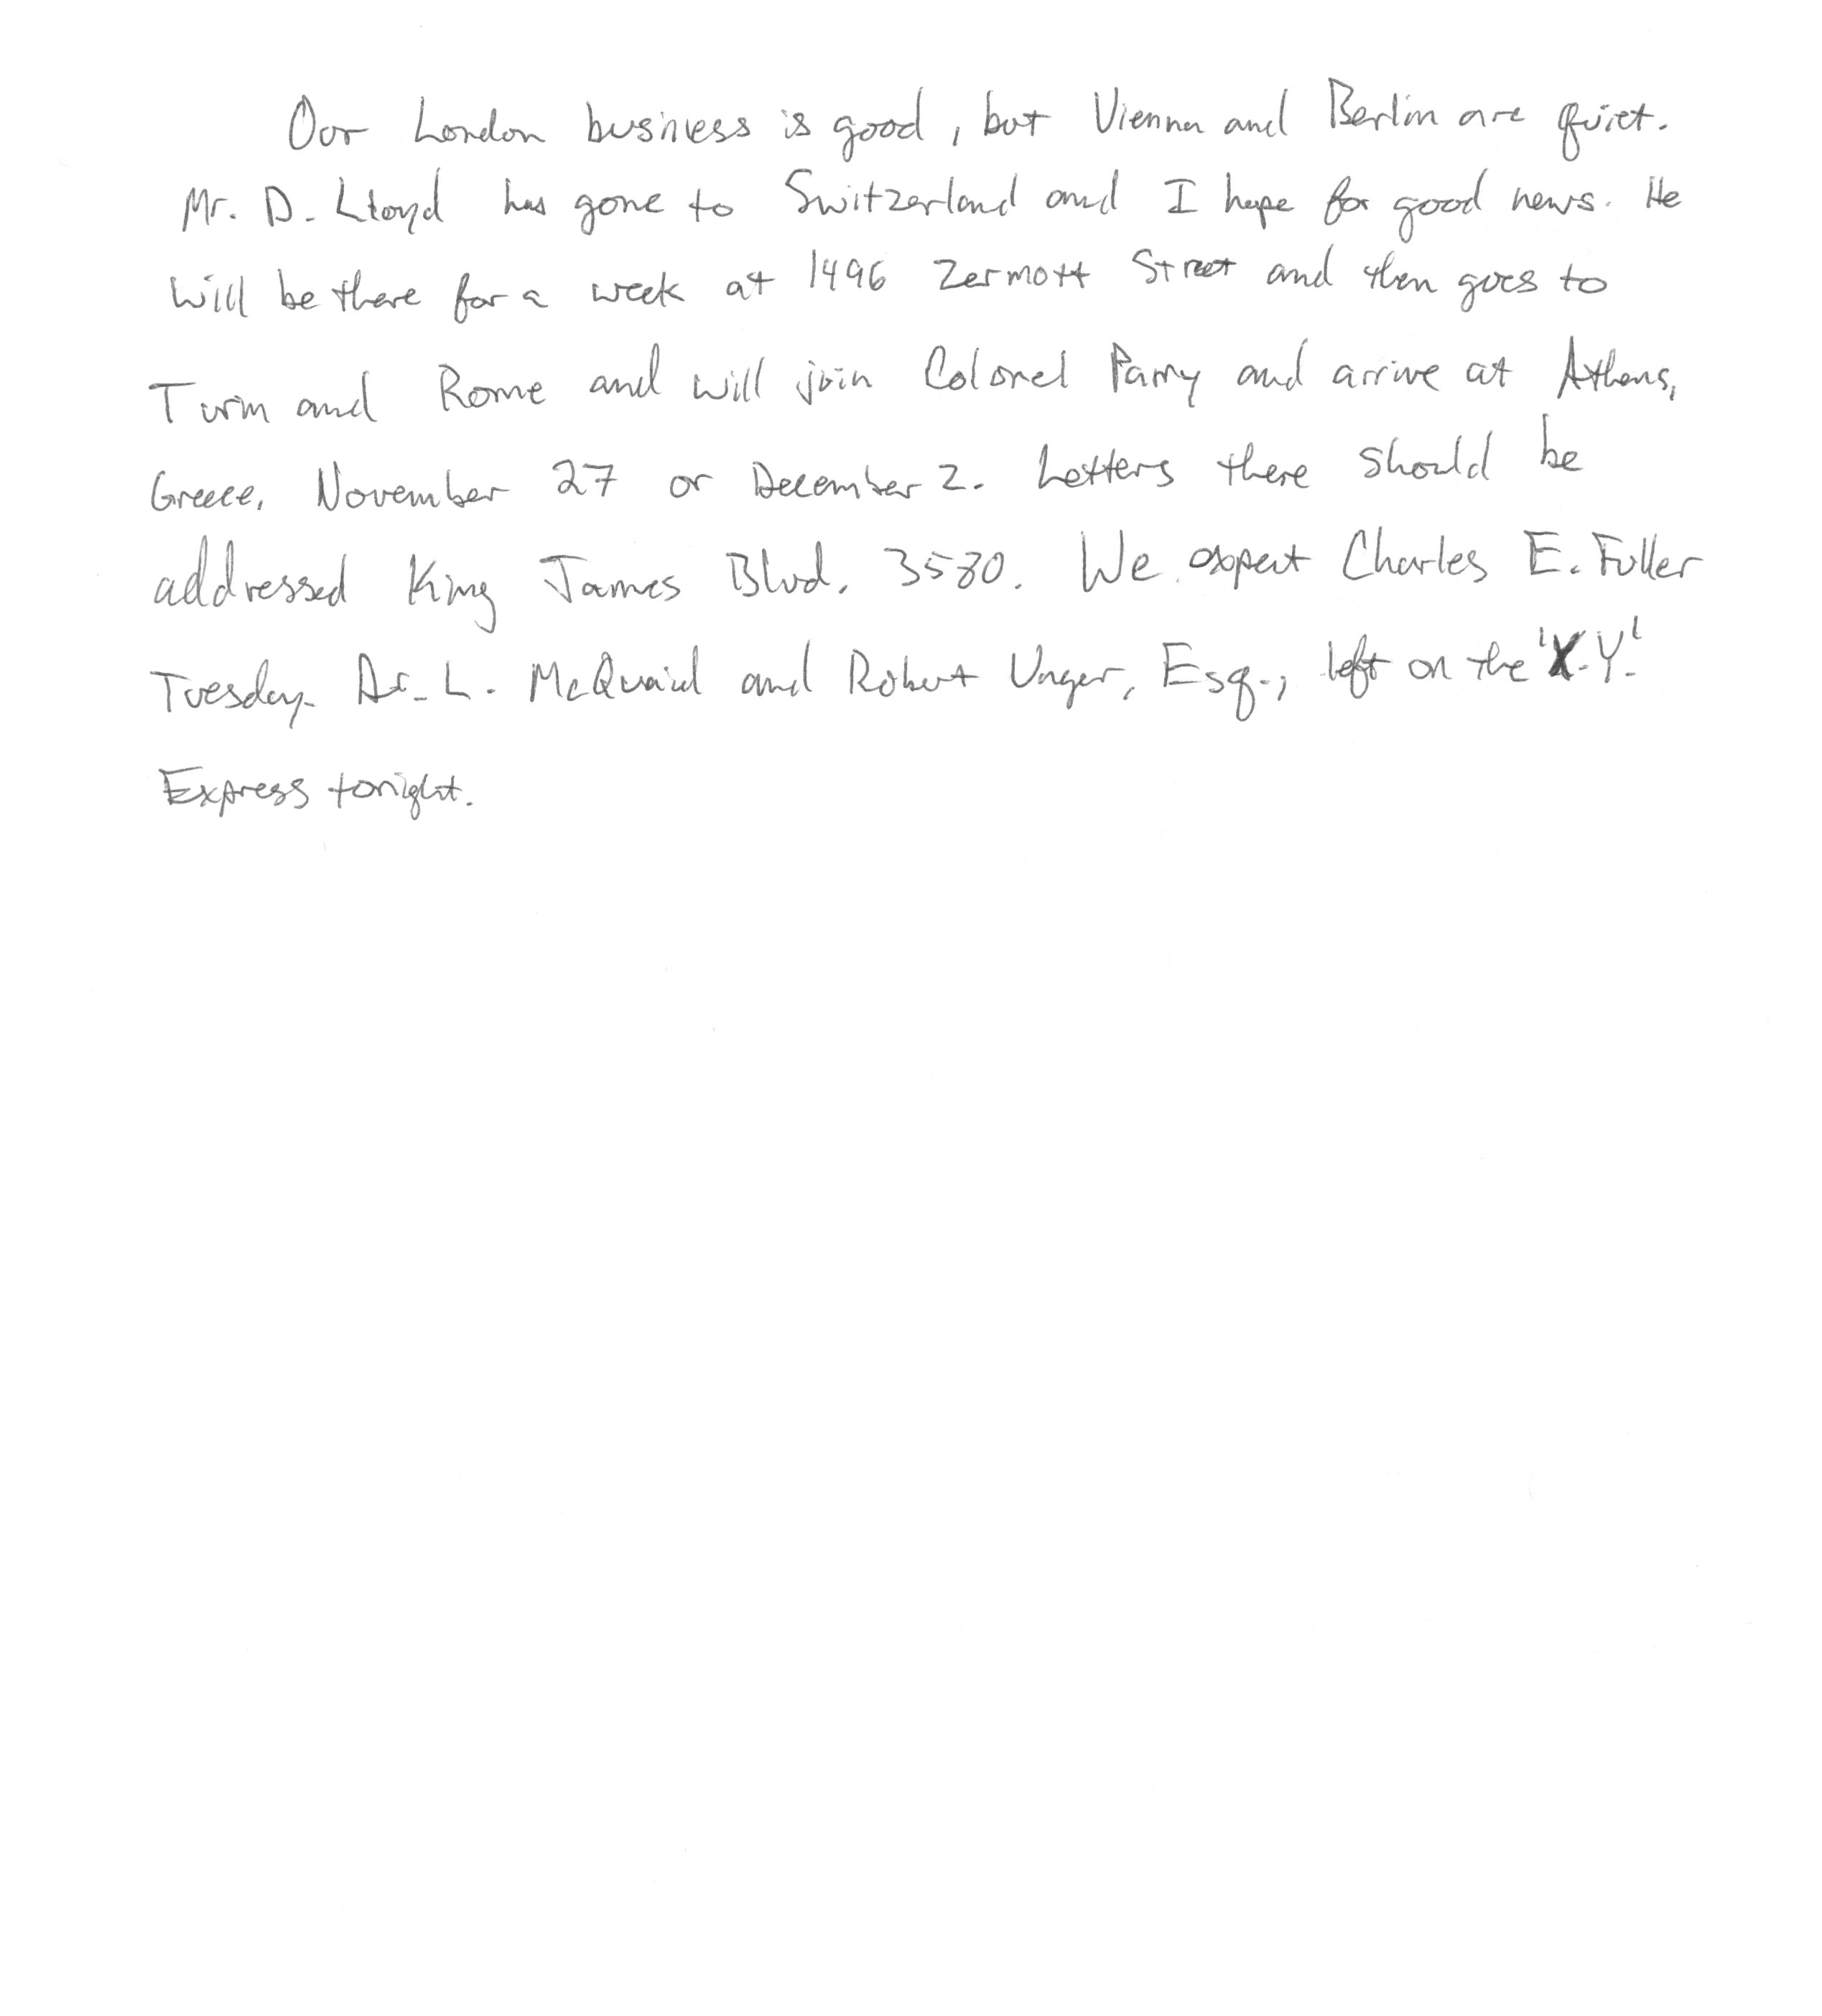 Our London business is good, but Vienna and Berlin are quiet.
Mr. D. Lloyd has gone to Switzerland and I hope for good news. He
will be there for a week at 1496 Zermott Street and then goes to
Turin and Rome and will join Colonel Parry and arrive at Athens,
Greece, November 27 or December 2. Letters there should be
addressed King James Blvd. 3580. We expect Charles E. Fuller
Tuesday. Dr. L. McQuaid and Robert Unger, Esq., left on the 'X.Y.'
Express tonight.